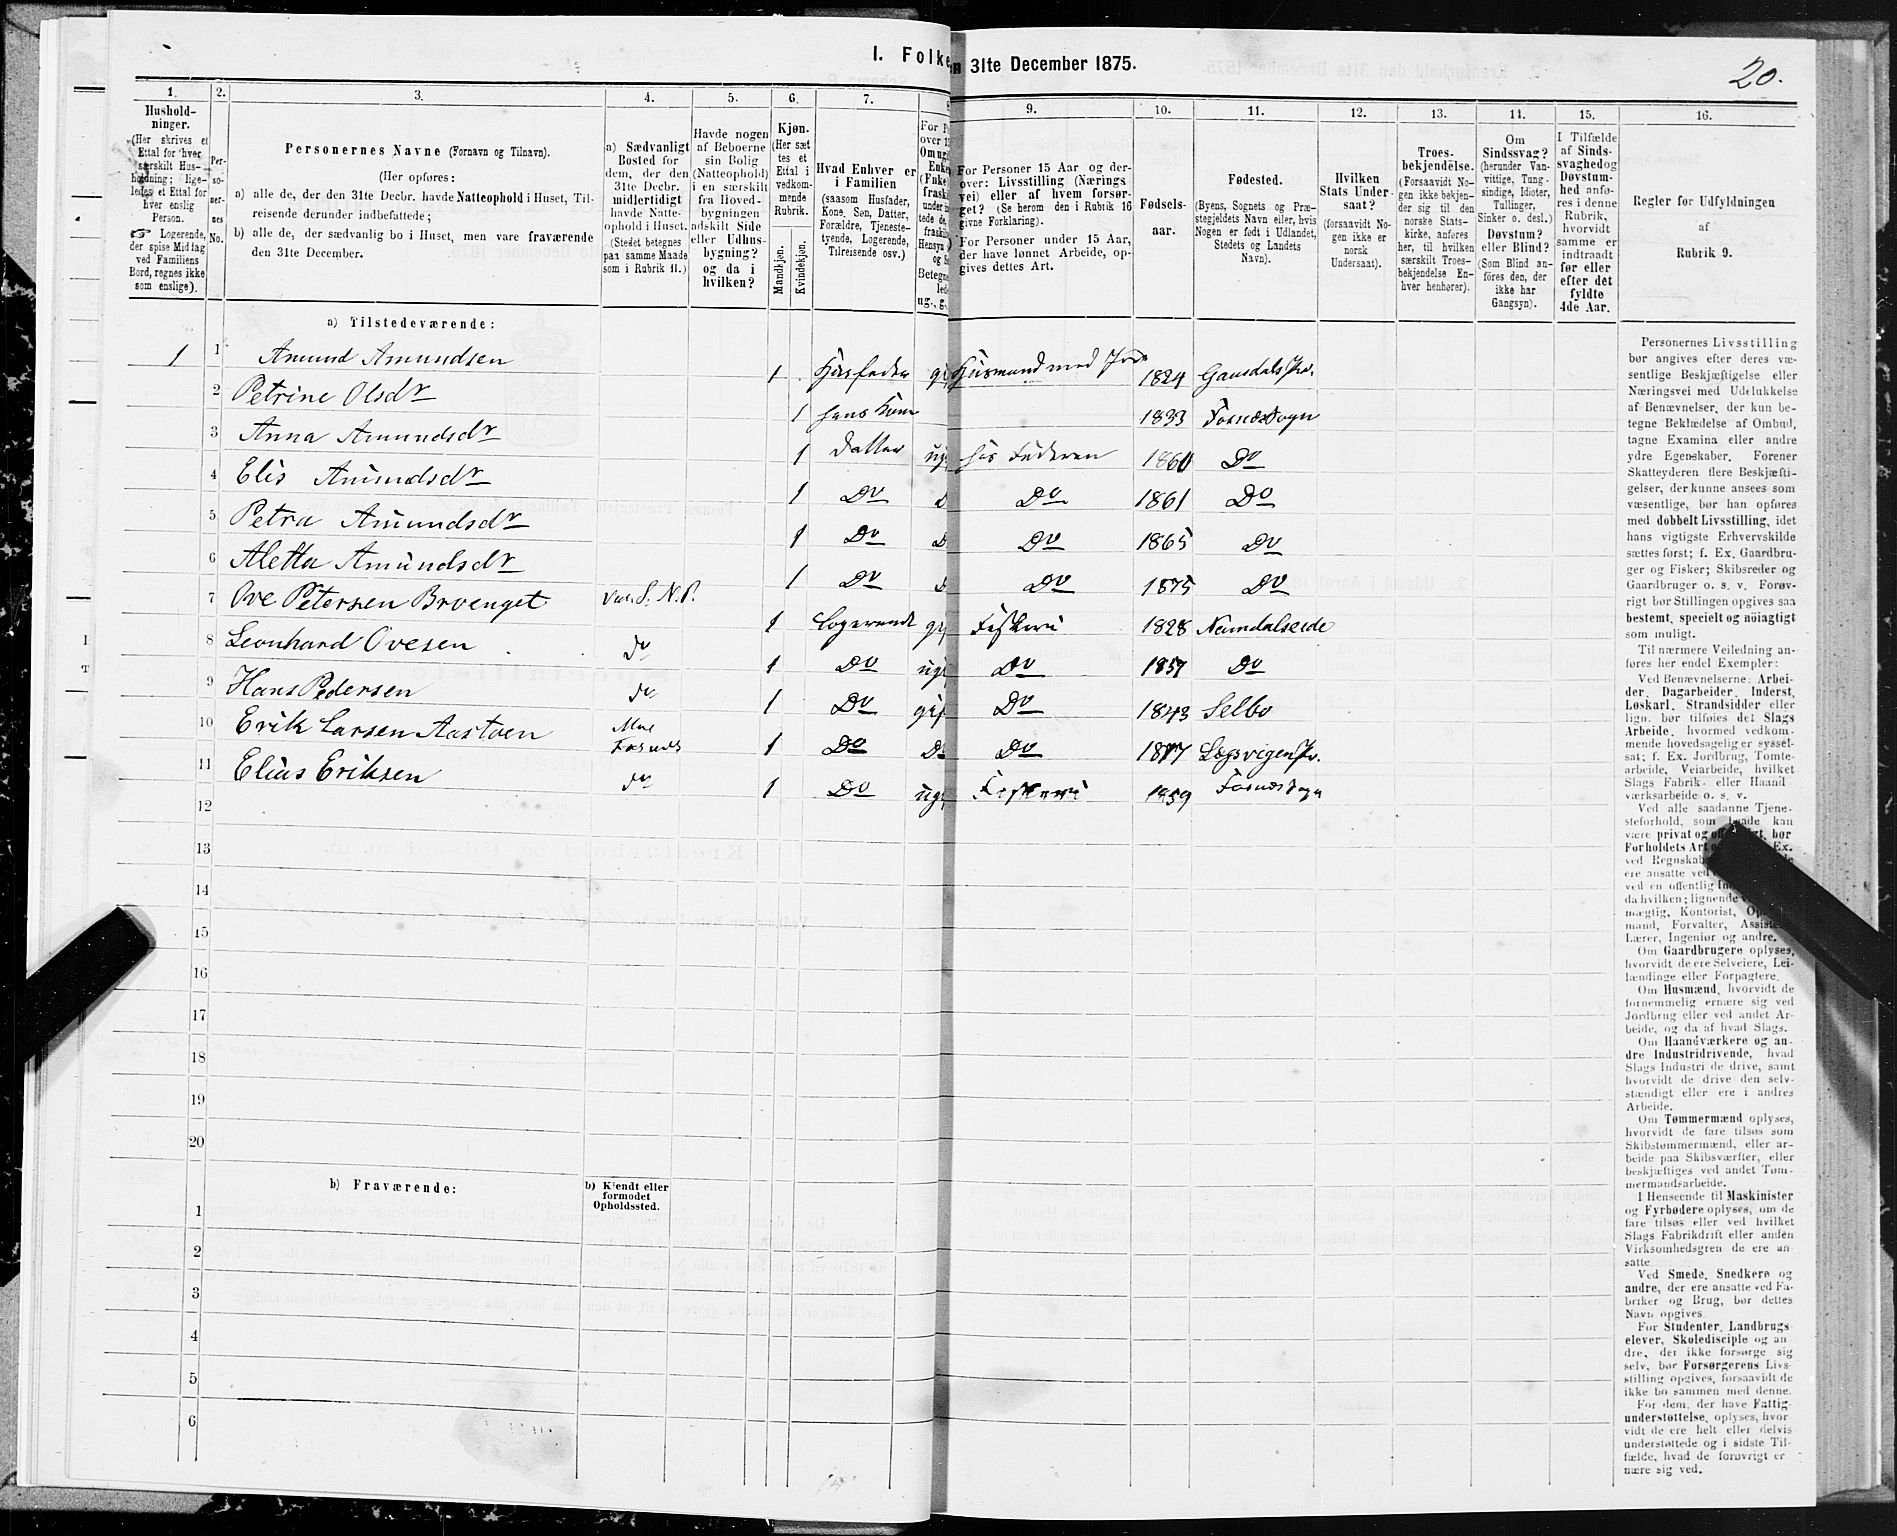 I. Folke
en 31te December 1875.
20.
1.
2.
3.
4.
5.
6.
7.
8
9.
10.
11.
12.
13.
14.
15.
16.
Hushold-
ninger.
(Her skrives et
Ettal for hver
særskilt Hus-
holdning; lige-
ledes et Ettal for
hver enslig
Person.
☞ Logerende,
der spise Middag
ved Familiens
Bord, regnes ikke
som enslige).
Per-
so-
ner-
nes
No.
Personernes Navne (Fornavn og Tilnavn).
(Her opføres:
a) alle de, der den 31te Decbr. havde Natteophold i Huset, Til-
reisende derunder indbefattede;
b) alle de, der sædvanlig bo i Huset, men vare fraværende
den 31te December.
a) Sædvanligt
Bosted for
dem, der den
31te Decbr.
midlertidigt
havde Natte-
ophold i Huset.
(Stedet betegnes
paa samme Maade
som i Rubrik 11.)
Havde nogen
af Beboerne
sin Bolig
(Natteophold)
i en særskilt
fra Hoved-
bygningen
adskilt Side
eller Udhus-
bygning?
og da i
hvilken?
Kjøn.
(Her sæt
tes et
Ettal i
vedkom-
mende
Rubrik.
Mandkjøn.
Kvindekjøn.
Hvad Enhver er
i Familien
(saasom Husfader,
Kone, Søn, Datter,
Forældre, Tjeneste-
tyende, Logerende,
Tilreisende osv.)
For Personer 15 Aar og der-
over: Livsstilling (Nærings
vei) eller af hvem forsør-
get? (Se herom den i Rubrik 16
givne Forklaring).
For Personer under 15 Aar,
der have lønnet Arbeide, op-
gives dettes Art.
Fødsels-
aar.
Fødested.
(Byens, Sognets og Præ-
stegjeldets Navn eller, hvis
Nogen er født i Udlandet,
Stedets og Landets
Navn).
Hvilken
Stats Under-
saat?
(forsaavidt No-
gen ikke er
norsk
Undersaat).
Troes-
bekjendelse.
(Forsaavidt No-
gen ikke bekjen-
der sig til den
norske Stats-
kirke, anføres
her, til hvilken
særskilt Troes-
bekjendelse En-
hver henhører).
Om
Sindssvag?
(herunder Van-
vittige, Tung-
sindige, Idioter,
Tullinger,
Sinker o. desl.)
Døvstum?
eller Blind?
(Som Blind an-
føres den, der
ikke har
Gangsyn).
I Tilfælde
af Sinds-
svaghed og
Døvstum-
hed anfø-
res i denne
Rubrik,
hvorvidt
samme er
indtraadt
før eller
efter det
fyldte
4de Aar.
Regler for Udfyldningen
af
Rubrik 9.
a) Tilstedeværende:
1 1 Amund Amundsen 1 Husfader gif Husmand med Jord 1824 Gausdals Pr.
2 Petrine Olsdr 1 hans Kone 1833 Fosnæs Sogn
3 Anna Amundsdr 1 Datter ug. hos Faderen 1860 Do
4 Elis Amundsdr 1 Do D Do 1861 Do
5 Petra Amundsdr 1 Do D Do 1865 Do
6 Aletta Amundsdr 1 Do D Do 1875 Do
7 Ove Petersen Brvenget S. N. P. 1 Logerende gif Fiskeri 1828 Namdalseide
8 Leonhard Ovesen Do 1 Do ug Do 1857 Do
9 Hans Pedersen Do 1 Do gif Do 1843 Selbo
10 Erik Larsen Aastøen Fosnæs 1 Do D Do 1817 Legsvigen Pr.
11 Elias Eriksen Do 1 Do ug Fiskeri 1859 Fosnæs Sogn
12
13
14
15
16
17
18
19
20
b) Fraværende:
b) Kjendt eller
formodet
Opholdssted.
1
2
3
4
5
6
Personernes Livsstilling
bør angives efter deres væ-
sentlige Beskjæftigelse eller
Næringsvei med Udelukkelse
af Benævnelser, der kun be-
tegne Beklædelse af Ombud,
tagne Examina eller andre
ydre Egenskaber. Forener
Skatteyderen flere Beskjæfti-
gelser, der kunne ansees som
væsentlige, bør han opføres
med dobbelt Livsstilling, idet
hans vigtigste Erhvervskilde
sættes først; f. Ex. Gaardbru-
ger og Fisker; Skibsreder og
Gaardbruger o. s. v. Forøv-
rigt bør Stillingen opgives saa
bestemt, specielt og nöiagtigt
som muligt.
Til nærmere Veiledning an-
føres her endel Exempler:
Ved Benævnelserne: Arbei-
der, Dagarbeider, Inderst,
Løskarl, Strandsidder eller
lign. bør tilføies det Slags
Arbeide, hvormed vedkom-
mende hovedsagelig er syssel-
sat; f. Ex. Jordbrug, Tomte-
arbeide, Veiarbeide, hvilket
Slags Fabrik- eller Haand
værksarbeide o. s. v.
Ved alle saadanne Tjene-
steforhold, som baade kan
være privat og offentligt, bør
Forholdets Art
ved Regnskab
ere ansatte ved
ved en offentlig
da hvilken; lignende
mægtig, Kontorist,
mand, Forvalter,
Lærer, Ingeniør og andre.
Om Gaardbrugere oplyses,
hvorvidt de ere Selveiere, Lei-
lændinge eller Forpagtere.
Om Husmænd, hvorvidt de
fornemmelig ernære sig ved
Jordbrug eller ved andet Ar-
beide, og da af hvad Slags.
Om Haandværkere og an-
dre Industridrivende, hvad
Slags Industri de drive, samt
hvorvidt de drive den selv-
stændigt eller ere i andres
Arbeide.
Om Tømmermænd oplyses,
hvorvidt de fare tilsøs som
Skibstømmermænd, eller ar-
beide paa Skibsværfter, eller
beskjæftiges ved andet Tøm-
mermandsarbeide.
I Henseende til Maskinister
og Fyrbødere oplyses, om de
fare tilsøs eller ved hvilket
Slags Fabrikdrift eller anden
Virksomhedsgren de ere an-
satte.
Ved Smede, Snedkere og
andre, der ere ansatte ved Fa-
briker og Brug, bør dettes
Navn opgives.
For Studenter, Landbrugs-
elever, Skoledisciple og an
dre, der ikke forsørge sig
selv, bør Forsørgerens Livs-
stilling opgives, forsaavidt de
ikke bo sammen med denne.
For dem, der have Fattig-
understøttelse, oplyses, hvor
vidt de ere helt eller delvis
understøttede og i sidste Til-
fælde, hvad de forøvrigt er
nære sig ved.